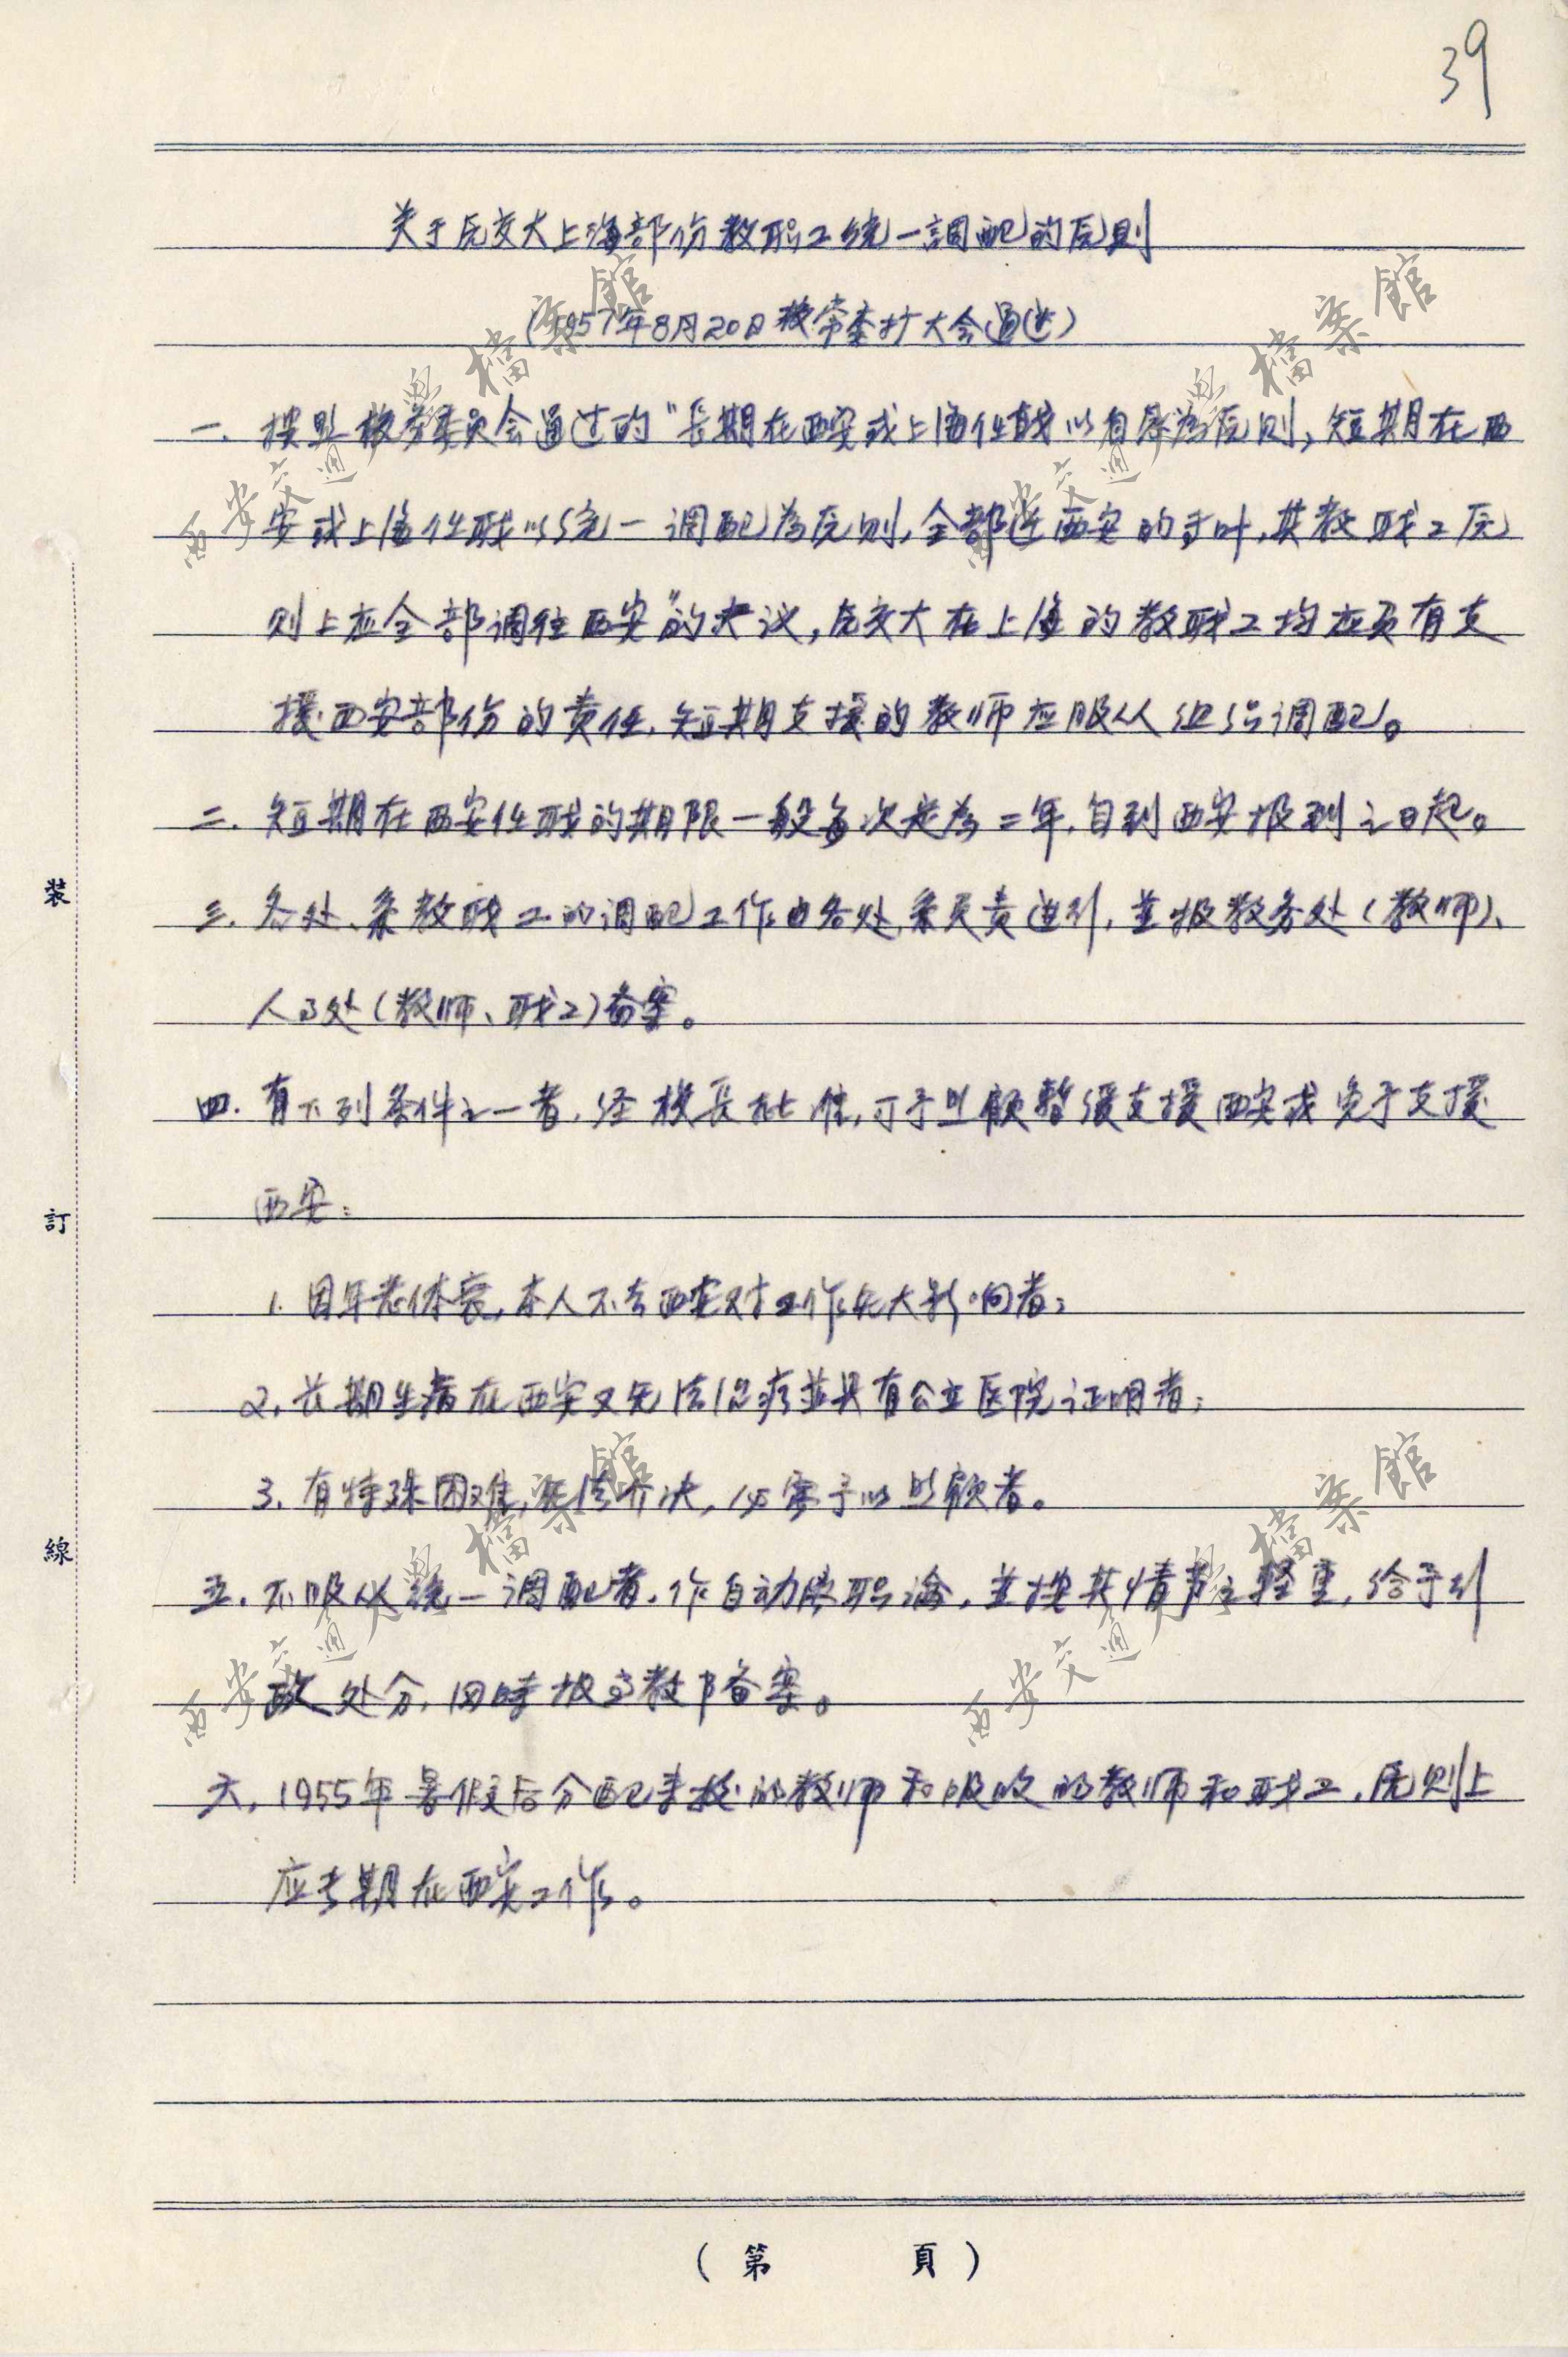 39
关于原交大上海部份教职工统一調配的原則
(1957年8月20日校常委扩大会通过)
一. 按照校务委员会通过的“長期在西安或上海任职以自愿为原则,短期在西
安或上海任职以统一调配为原则,全部迁西安的专业,其教职工原
则上应全部调往西安”的决议,原交大在上海的教职工均应负有支
援西安部份的责任,短期支援的教师应服从组织调配。
二. 短期在西安任职的期限一般每次定为二年,自到西安报到之日起。
三. 各处、系教职工的调配工作由各处、系负责进行,並报教务处(教师)、
人事处(教师、职工)备案。
四. 有下列条件之一者,经校長批准,可予照顧暂缓支援西安或免于支援
西安:
1. 因年老体衰,本人不去西安对工作无大影响者;
2. 长期生病在西安又无法治疗並具有公立医院证明者;
3. 有特殊困难,无法介决,必需予以照顧者。
五. 不服从统一调配者,作自动离职論,並按其情节之轻重,给予行
政处分,同時报高教部备案。
六. 1955年暑假后分配来校的教师和吸收的教师和职工,原则上
应长期在西安工作。
裝
訂
線
(第 頁)
西安交通大學檔案館
西安交通大學檔案館
西安交通大學檔案館
西安交通大學檔案館